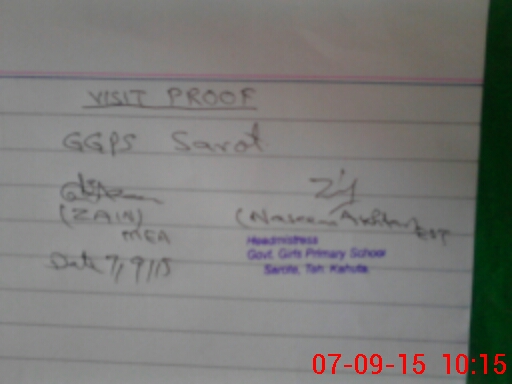 VISIT PROOF
GGPS Sarot
(ZAIN)
MEA
Date 7/9/15
(Naseem Akhtar) EST
Headmistress
Govt. Girls Primary School
Sarote, Teh: Kahuta
07-09-15 10:15